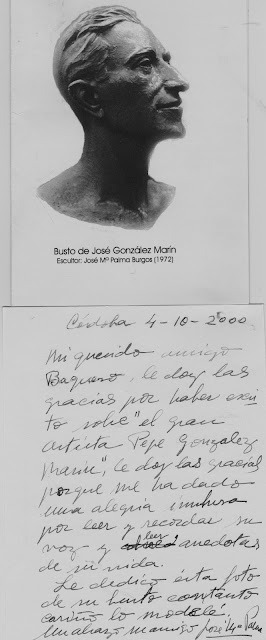 Busto de José González Marín
Escultor: José Mª Palma Burgos (1972)
Córdoba 4-10-2000
Mi querido amigo
Baquero, le doy las
gracias por haber escri
to sobre "el gran
artista Pepe Gonzalez
Marin", le doy las gracias
porque me ha dado
una alegria inmensa
por leer y recordar su
voz y leer anecdotas
de su vida.
Le dedico ésta foto
de su busto con tanto
cariño lo modelé.
Un abrazo su amigo José Mª Palma